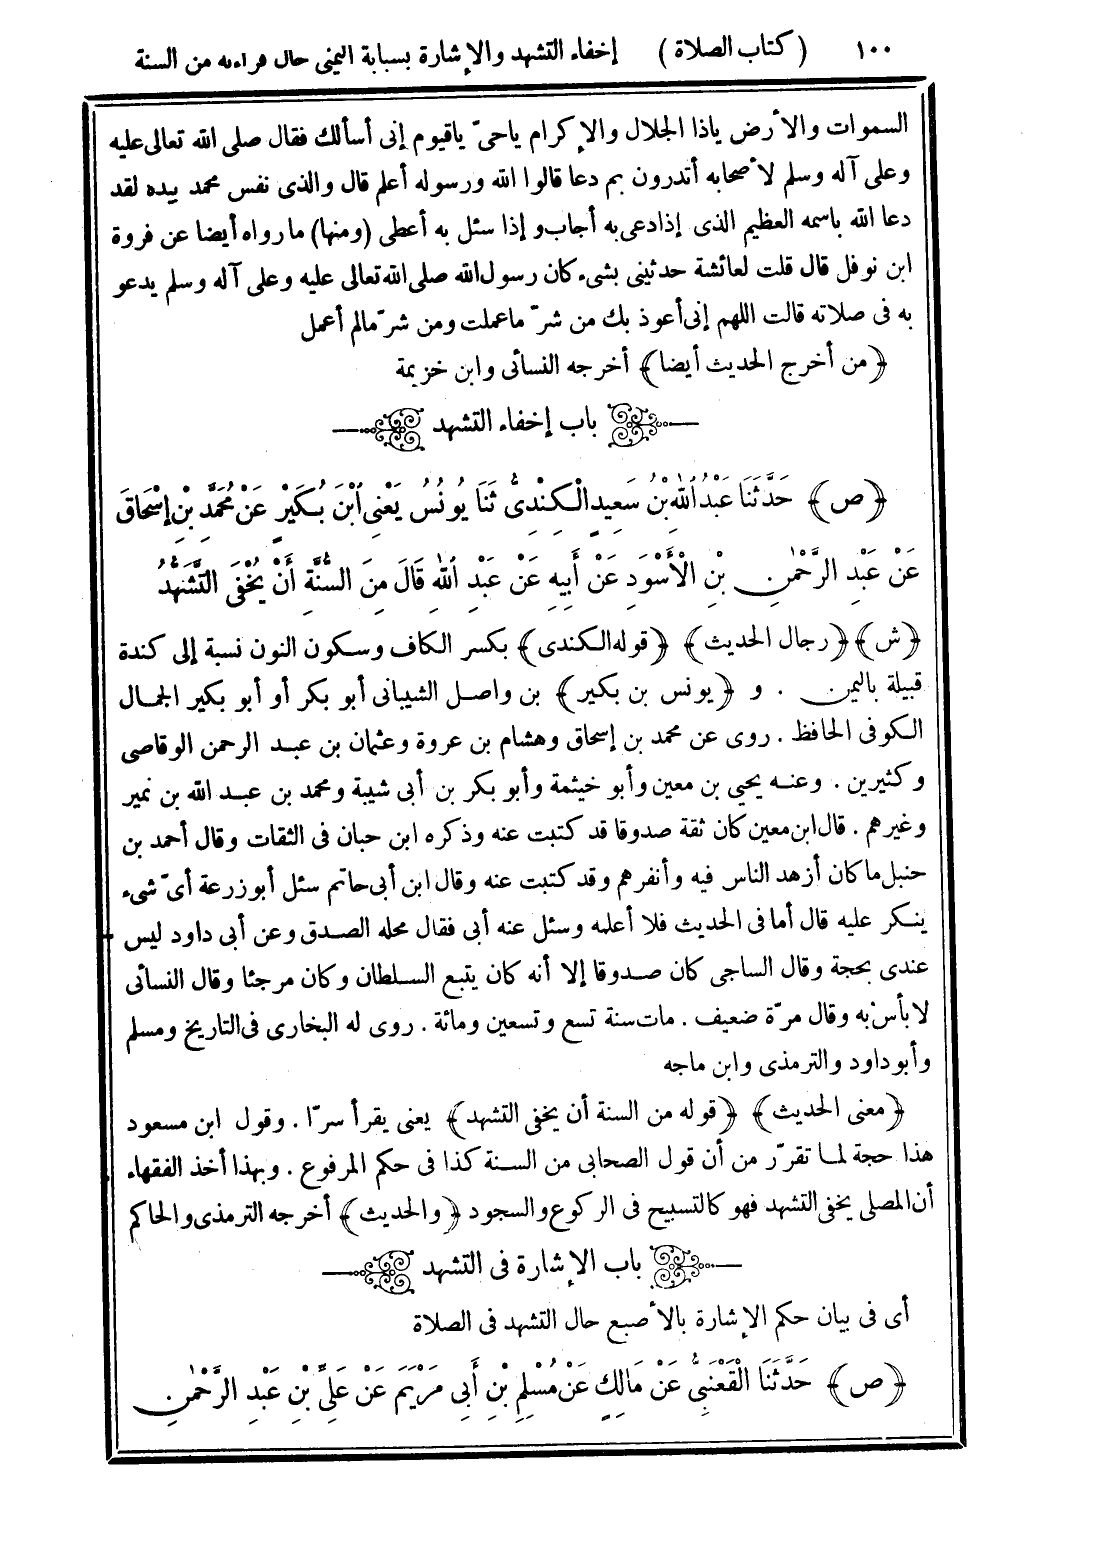 ١٠٠ (كتاب الصلاة) إخفاء التشهد والإشارة بسبابة اليمنى حال قراءته من السنة
السموات والأرض ياذا الجلال والإكرام ياحىّ ياقيوم إنى أسألك فقال صلى الله تعالى عليه
وعلى آله وسلم لأصحابه أتدرون بم دعا قالوا الله ورسوله أعلم قال والذى نفس محمد بيده لقد
دعا الله باسمه العظيم الذى إذا دعى به أجاب وإذا سئل به أعطى (ومنها) ما رواه أيضا عن فروة
ابن نوفل قال قلت لعائشة حدثينى بشىء كان رسول الله صلى الله تعالى عليه وعلى آله وسلم يدعو
به فى صلاته قالت اللهم إنى أعوذ بك من شرّ ما عملت ومن شرّ مالم أعمل
﴿من أخرج الحديث أيضا﴾ أخرجه النسائى وابن خزيمة
باب إخفاء التشهد
﴿ص﴾ حَدَّثَنَا عَبْدُ اللهِ بْنُ سَعِيدٍ الْكِنْدِىُّ ثَنَا يُونُسُ يَعْنِى ابْنَ بُكَيْرٍ عَنْ مُحَمَّدِ بْنِ إِسْحَاقَ
عَنْ عَبْدِ الرَّحْمٰنِ بْنِ الْأَسْوَدِ عَنْ أَبِيهِ عَنْ عَبْدِ اللهِ قَالَ مِنَ السُّنَّةِ أَنْ يُخْفَى التَّشَهُّدُ
﴿ش﴾ ﴿رجال الحديث﴾ ﴿قوله الكندى﴾ بكسر الكاف وسكون النون نسبة إلى كندة
قبيلة باليمن . و ﴿يونس بن بكير﴾ بن واصل الشيبانى أبو بكر أو أبو بكير الجمال
الكوفى الحافظ . روى عن محمد بن إسحاق وهشام بن عروة وعثمان بن عبد الرحمن الوقاصى
وكثيرين . وعنه يحيى بن معين وأبو خيثمة وأبو بكر بن أبى شيبة ومحمد بن عبد الله بن نمير
وغيرهم . قال ابن معين كان ثقة صدوقا قد كتبت عنه وذكره ابن حبان فى الثقات وقال أحمد بن
حنبل ما كان أزهد الناس فيه وأنفرهم وقد كتبت عنه وقال ابن أبى حاتم سئل أبو زرعة أىّ شىء
ينكر عليه قال أما فى الحديث فلا أعلمه وسئل عنه أبى فقال محله الصدق وعن أبى داود ليس
عندى بحجة وقال الساجى كان صدوقا إلا أنه كان يتبع السلطان وكان مرجئا وقال النسائى
لا بأس به وقال مرّة ضعيف . مات سنة تسع وتسعين ومائة . روى له البخارى فى التاريخ ومسلم
وأبو داود والترمذى وابن ماجه
﴿معنى الحديث﴾ ﴿قوله من السنة أن يخفى التشهد﴾ يعنى يقرأ سرّا . وقول ابن مسعود
هذا حجة لما تقرّر من أن قول الصحابى من السنة كذا فى حكم المرفوع . وبهذا أخذ الفقهاء
أن المصلى يخفى التشهد فهو كالتسبيح فى الركوع والسجود ﴿والحديث﴾ أخرجه الترمذى والحاكم
باب الإشارة فى التشهد
أى فى بيان حكم الإشارة بالأصبع حال التشهد فى الصلاة
﴿ص﴾ حَدَّثَنَا الْقَعْنَبِىُّ عَنْ مَالِكٍ عَنْ مُسْلِمِ بْنِ أَبِى مَرْيَمَ عَنْ عَلِىِّ بْنِ عَبْدِ الرَّحْمٰنِ